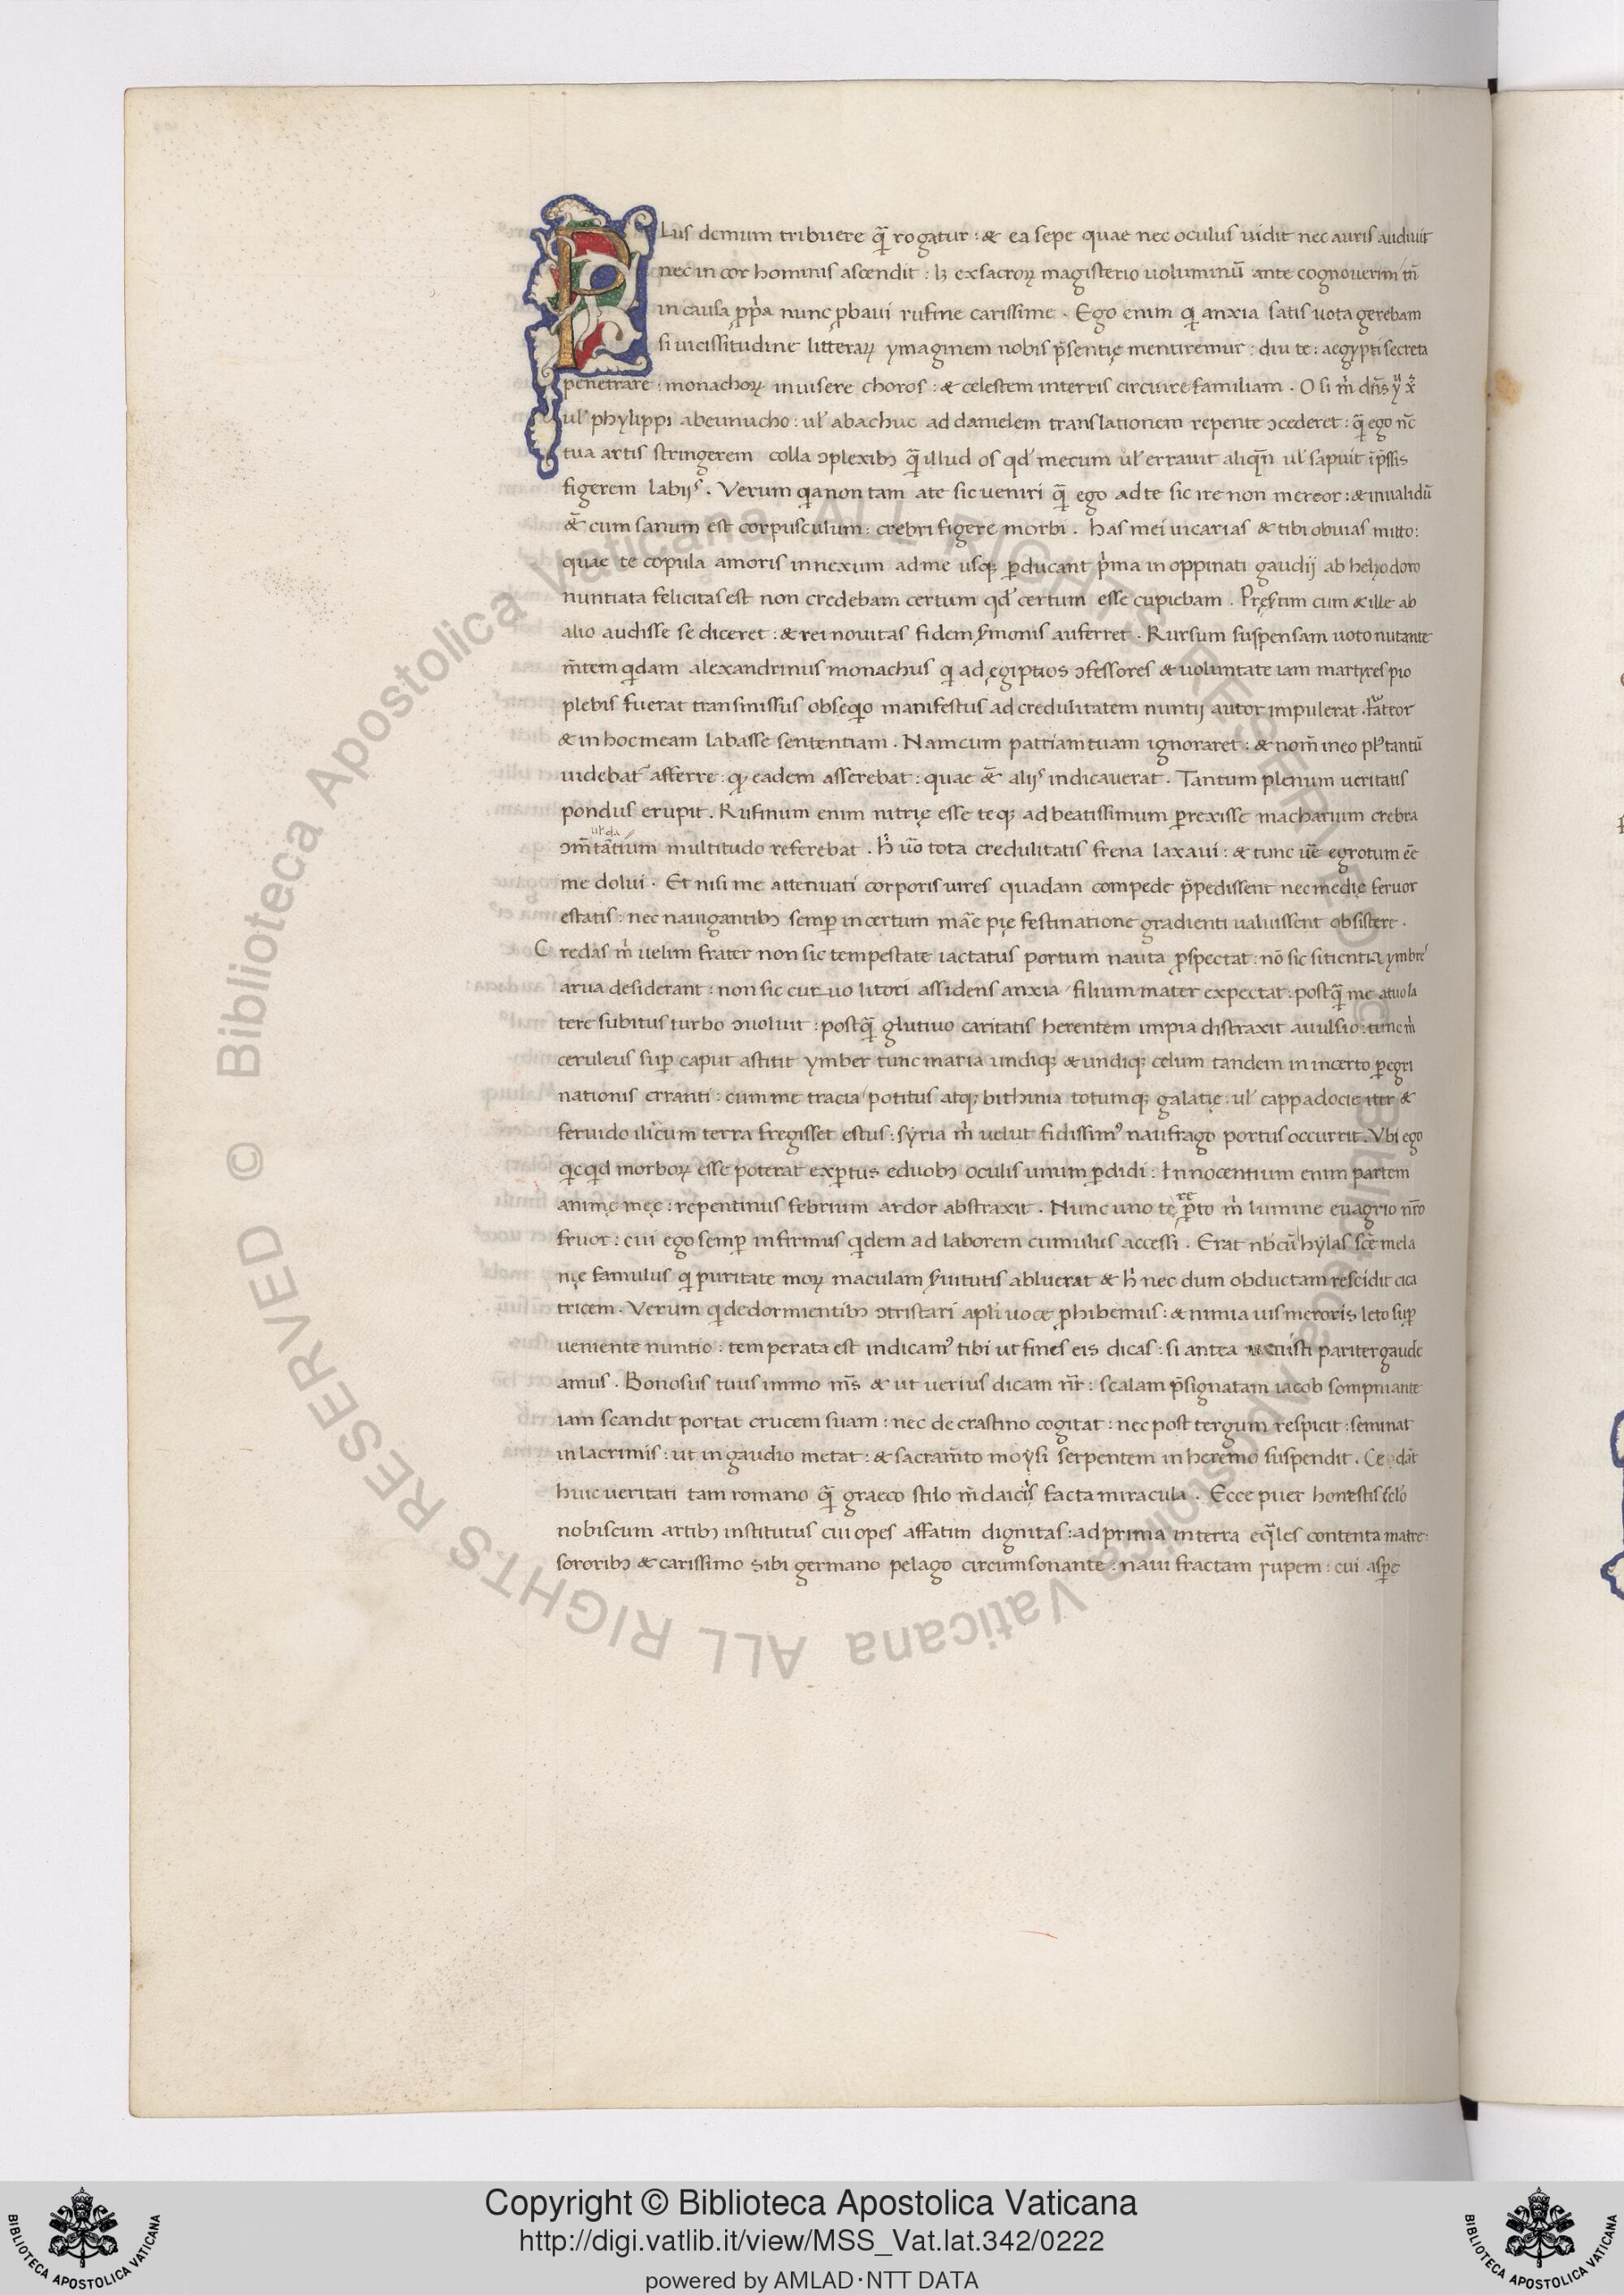 PLus demum tribuere q̄ꝫ rogatur : & ea sepe quae nec oculus uidit nec auris audiuit
nec in cor hominis ascendit : lꝫ ex sacroꝝ magisterio uoluminū ante cognouerim tn̄
in causa ꝓp̄a nunc ꝓbaui rufine carissime . Ego enim qi anxia satis uota gerebam
si uicissitudine litteraꝝ ymaginem nobis p̄sentię mentiremur : diu te : aegypti secreta
penetrare : monachoꝝ inuisere choros : & celestem in terris circuire familiam . O si m̄ dn̄s
ul' phylippi ab eunucho : ul' abachuc ad danielem translationem repente ɔcederet : q̄ꝫ ego nc̄
tua artis stringerem colla ɔplexibꝫ q̄ꝫ illud os qd' mecum ul' errauit aliqn̄ ul' sapuit īp̄ssis
figerem labijs . Verum qia non tam ate sic ueniri q̄ꝫ ego ad te sic ire non mereor : & inualidū
&̄ cum sanum est corpusculum : crebri figere morbi . has mei uicarias & tibi obuias mitto :
quae te copula amoris innexum ad me usqꝫ ꝑducant p̄ma in oppinati gaudij ab helyodoro
nuntiata felicitas est non credebam certum qd' certum esse cupiebam . Pręsertim cum & ille ab
alio audisse se diceret : & rei nouitas fidem s̄monis auferret . Rursum suspensam uoto nutante
m̄tem qidam alexandrinus monachus qi ad ęgiptios ɔfessores & uoluntate iam martyres pio
plebis fuerat transmissus obseqio manifestus ad credulitatem nuntij autor impulerat . fateor
& in hoc meam labasse sententiam . Nam cum patriam tuam ignoraret : & nom̄ in eo pl' tantū
uidebat' afferre : qꝫ eadem asserebat : quae &̄ alijs indicauerat . Tantum plenum ueritatis
pondus erupit . Rufinum enim nitrię esse teqꝫ ad beatissimum ꝑrexisse macharium crebra
ɔm̄tātium multitudo referebat . h̄ u̅o tota credulitatis frena laxaui : & tunc ue̅ egrotum ee̅
me dolui . Et nisi me attenuati corporis uires quadam compede p̄pedissent nec medię feruor
estatis : nec nauigantibꝫ semꝑ incertum mar̄e pię festinatione gradienti ualuissent obsistere .
Credas m̄ uelim frater non sic tempestate iactatus portum nauta ꝓspectat : nō sic sitientia ymbre'
arua desiderant : non sic curuo litori assidens anxia filium mater expectat : postq̄ꝫ me atuo la
tere subitus turbo ɔuoluit : postq̄ꝫ glutino caritatis herentem impia distraxit auulsio : tunc m̄
ceruleus suꝑ caput astitit ymber tunc maria undiqꝫ & undiqꝫ celum tandem in incerto ꝑegri
nationis erranti : cum me tracia potitus atqꝫ bithinia totumqꝫ galatię : ul' cappadocie iter &
feruido ilicum terra fregisset estus : syria m̄ uelut fidissim' naufrago portus occurrit . Vbi ego
qicqid morboꝝ esse poterat exꝑtus eduobꝫ oculis unum ꝑdidi : Innocentium enim partem
animę męę : repentinus febrium ardor abstraxit . Nunc uno te ꝑto m̄ lumine euagrio nr̄o
fruor : cui ego semꝑ infirmus qidem ad laborem cumulus accessi . Erat nb̄cū hylas sce̅ mela
nię famulus qi puritate moꝝ maculam s̄uitutis abluerat & h̄ nec dum obductam rescidit cica
tricem . Verum qi de dormientibꝫ ɔtristari apl̄i uoce ꝓhibemus : & nimia uis meroris leto suꝑ
ueniente nuntio : temperata est indicam' tibi ut fines eis dicas : si antea pariter gaude
amus . Bonosus tuus immo m̄s & ut uerius dicam nr̄ : scalam p̄signatam iacob sompniante
iam scandit portat crucem suam : nec de crastino cogitat : nec post tergum respicit : seminat
in lacrimis : ut in gaudio metat : & sacram̄to moysi serpentem in heremo suspendit . Cedāt
huic ueritati tam romano q̄ꝫ graeco stilo m̄daicis facta miracula . Ecce puer honestis sc̄lo
nobiscum artibꝫ institutus cui opes affatim dignitas : ad prima interra eq̄les contenta matre :
sororibꝫ & carissimo sibi germano pelago circumsonante : naui fractam rupem : cui asꝑe
Copyright © Biblioteca Apostolica Vaticana
http://digi.vatlib.it/view/MSS_Vat.lat.342/0222
powered by AMLAD·NTT DATA
BIBLIOTECA APOSTOLICA VATICANA
BIBLIOTECA APOSTOLICA VATICANA
© Biblioteca Apostolica Vaticana ALL RIGHTS RESERVED
© Biblioteca Apostolica Vaticana ALL RIGHTS RESERVED